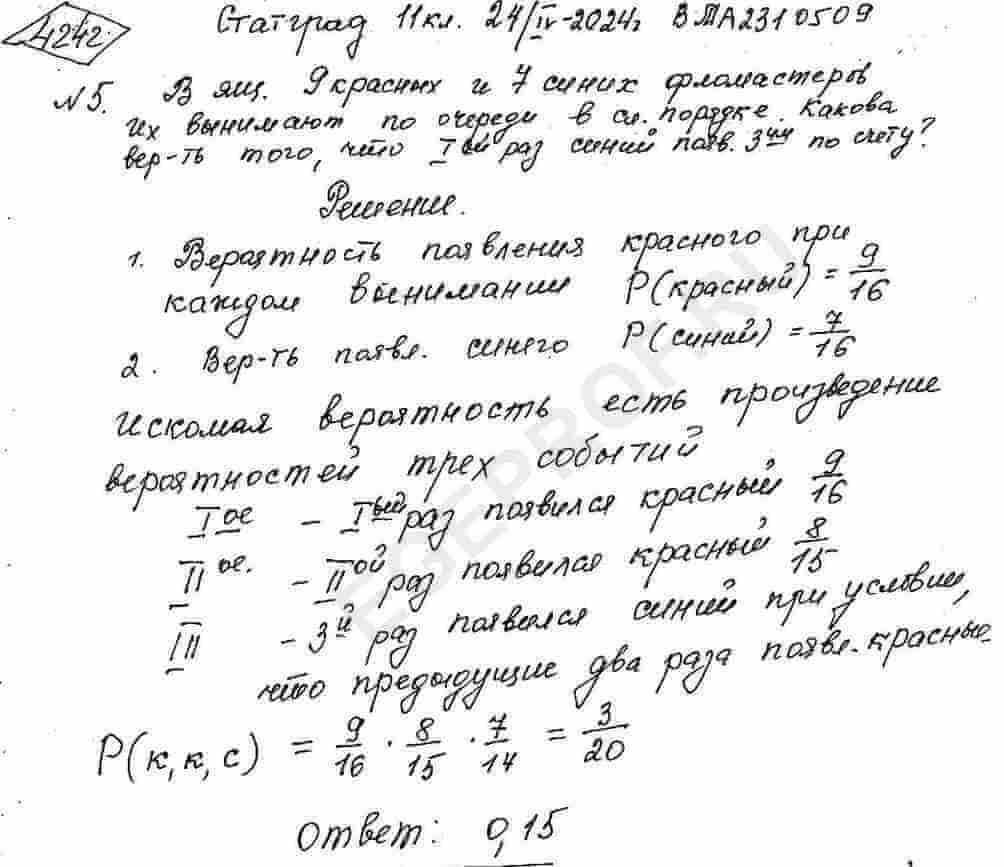 4242
Статград 11кл. 24/IV-2024г ВМА2310509
№5. В ящ. 9 красных и 7 синих фломастеров
Их вынимают по очереди в сл. порядке. Какова
вер-ть того, что Iый раз синий появ. 3ий по счету?
Решение.
1. Вероятность появления красного при
каждом вынимании P(красный) = 9/16
2. Вер-ть появл. синего P(синий) = 7/16
Искомая вероятность есть произведение
вероятностей трех событий
Iое – Iый раз появился красный 9/16
IIое. – IIой раз появился красный 8/15
III – 3й раз появился синий при условии,
что предыдущие два раза появл. красные.
P(к, к, с) = 9/16 · 8/15 · 7/14 = 3/20
Ответ: 0,15
EGEPROF.RU